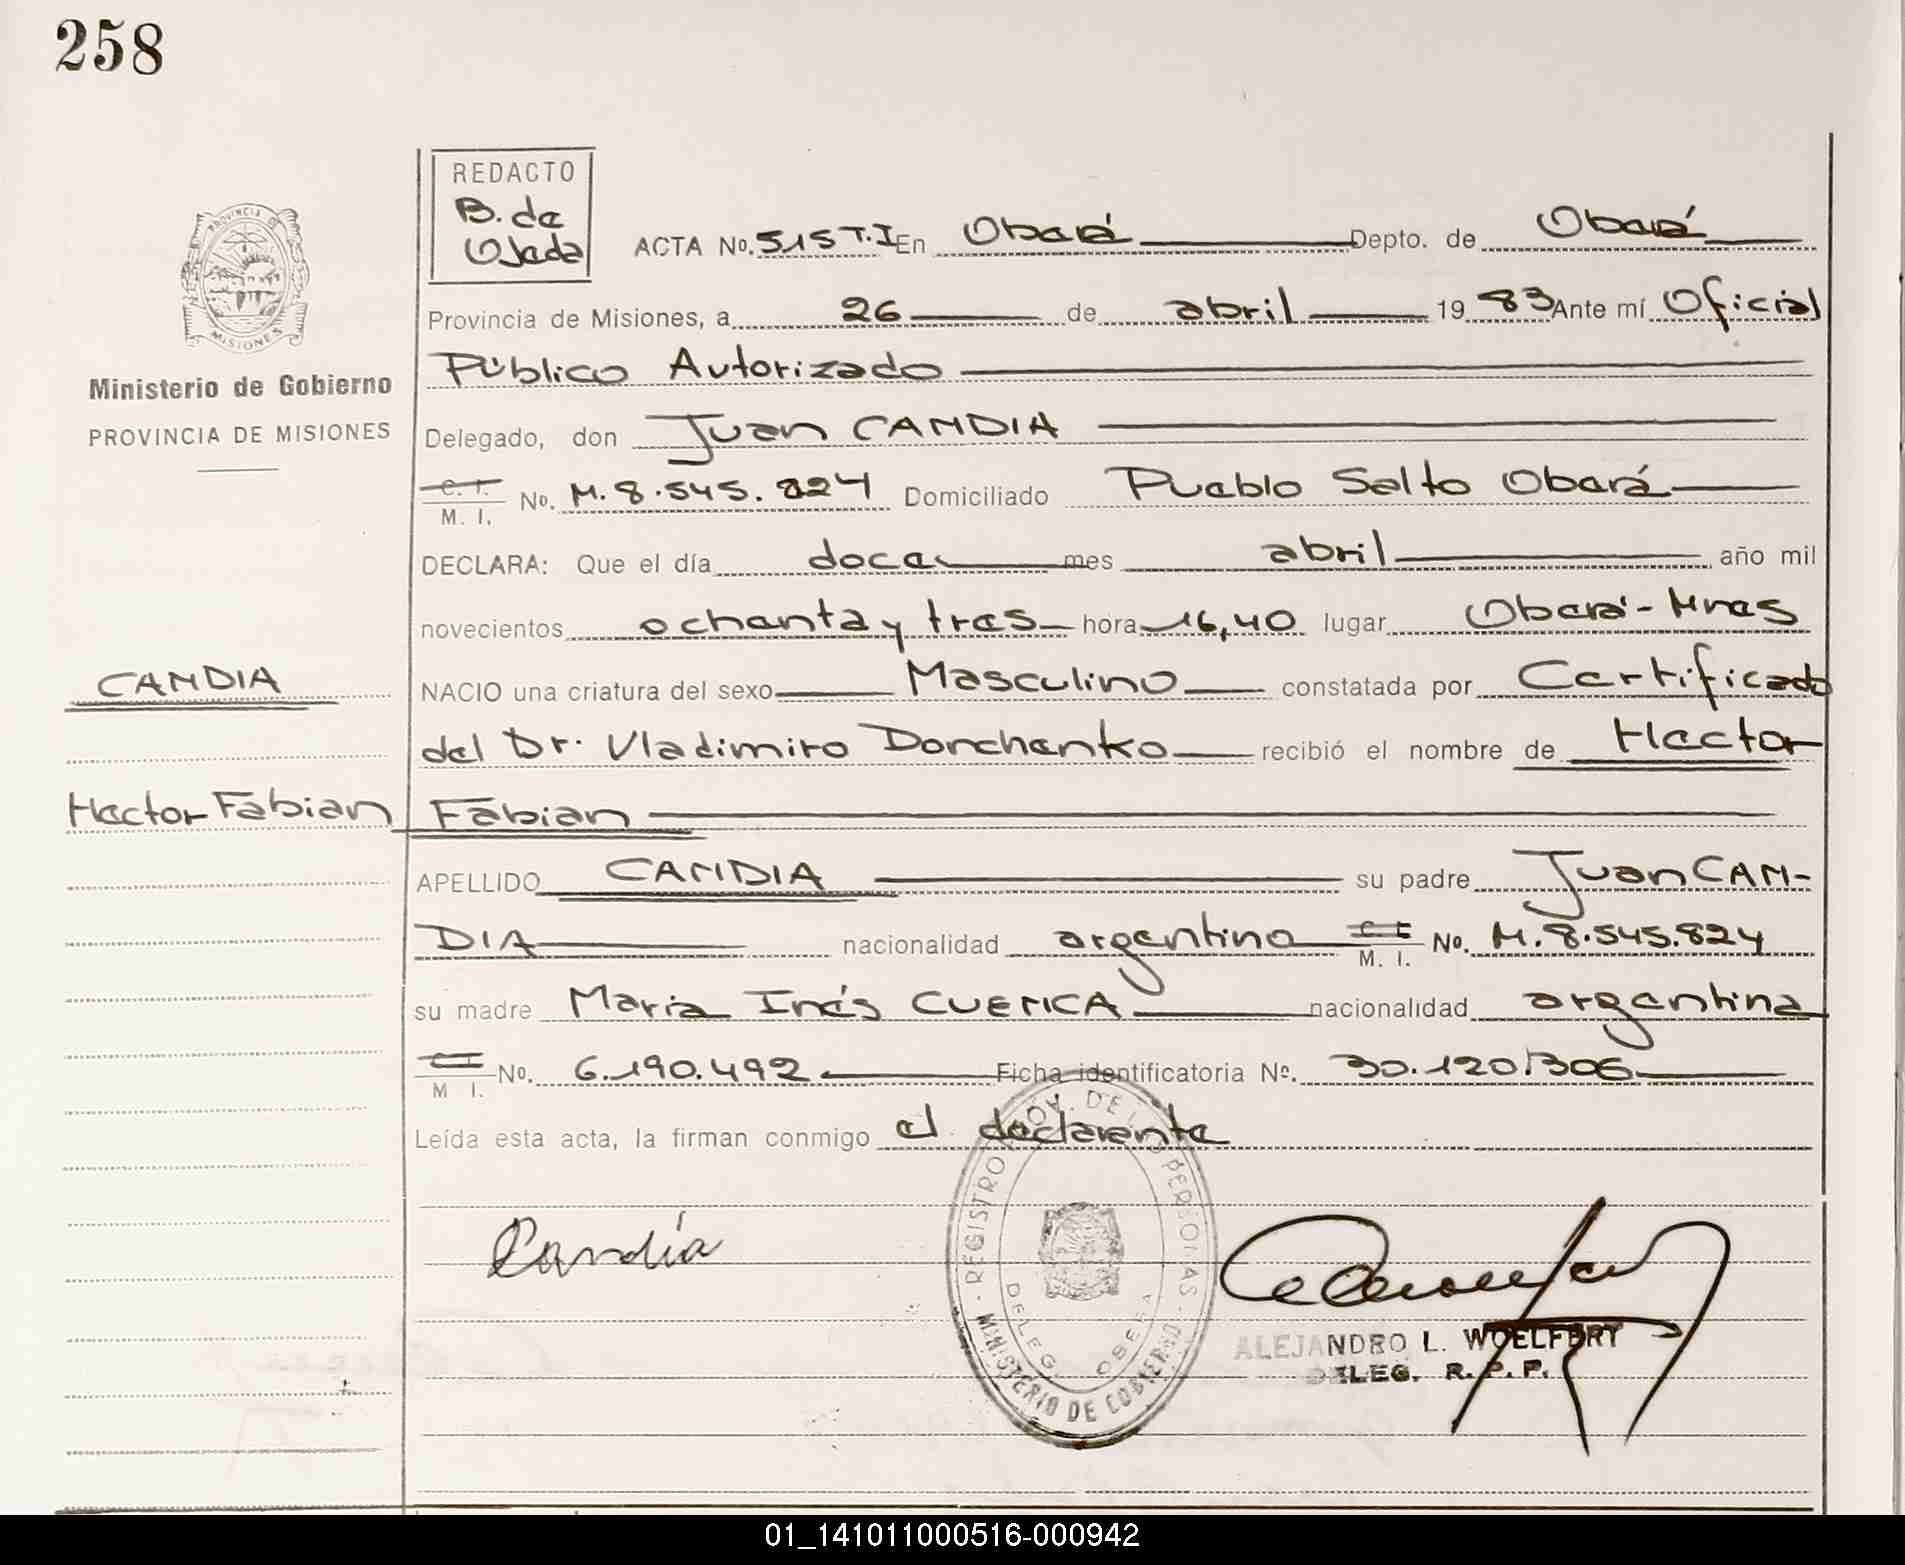 258
REDACTO
B. de
Ojeda
ACTA No. 515 T.I En Oberá Depto. de Oberá
Provincia de Misiones, a 26 de abril 1983 Ante mí Oficial
Ministerio de Gobierno
PROVINCIA DE MISIONES
Público Autorizado
Delegado, don Juan CANDIA
C. I.
M. I. No. M. 8.545.824 Domiciliado Pueblo Salto Oberá
DECLARA: Que el día doce mes abril año mil
novecientos ochenta y tres hora 16,40 lugar Oberá-Mnes
CANDIA
NACIO una criatura del sexo Masculino constatada por Certificado
del Dr. Vladimiro Donchenko recibió el nombre de Hector
Hector Fabian
Fabian
APELLIDO CANDIA su padre Juan CAN-
DIA nacionalidad argentino C I
M. I. No. M. 8.545.824
su madre Maria Inés CUENCA nacionalidad argentina
C I
M I. No. 6.190.492 Ficha identificatoria No. 30.120.306
Leída esta acta, la firman conmigo el declarente
Candía
REGISTRO PROV. DE LAS PERSONAS
DELEG. OBERA
MINISTERIO DE GOBIERNO
ALEJANDRO L. WOELFERT
DELEG. R. P. P.
PROVINCIA DE
MISIONES
01_141011000516-000942